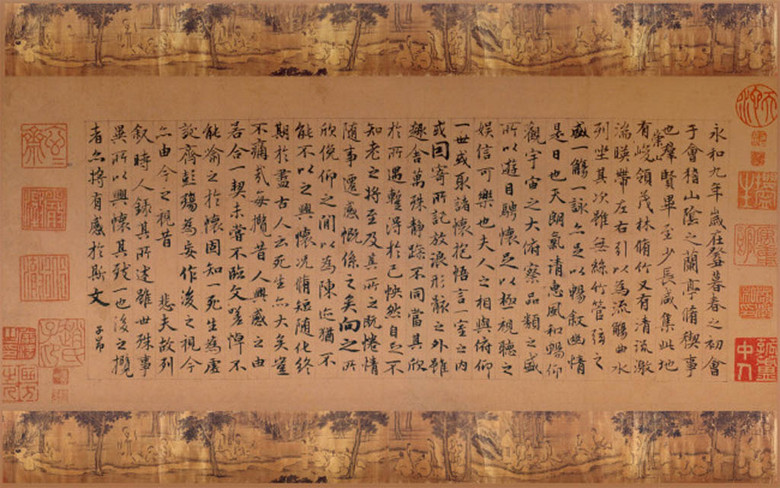 永和九年歲在癸丑暮春之初會
于會稽山陰之蘭亭脩禊事
也羣賢畢至少長咸集此地
有崇峻領茂林脩竹又有清流激
湍暎帶左右引以為流觴曲水
列坐其次雖無絲竹管弦之
盛一觴一詠亦足以暢敘幽情
是日也天朗氣清惠風和暢仰
觀宇宙之大俯察品類之盛
所以遊目騁懷足以極視聽之
娛信可樂也夫人之相與俯仰
一世或取諸懷抱悟言一室之內
或因寄所託放浪形骸之外雖
趣舍萬殊靜躁不同當其欣
於所遇暫得於己怏然自足不
知老之將至及其所之既惓情
隨事遷感慨係之矣向之所
欣俛仰之間以為陳迹猶不
能不以之興懷況脩短隨化終
期於盡古人云死生亦大矣豈
不痛哉每攬昔人興感之由
若合一契未嘗不臨文嗟悼不
能喻之於懷固知一死生為虛
誕齊彭殤為妄作後之視今
亦由今之視昔 悲夫故列
敘時人錄其所述雖世殊事
異所以興懷其致一也後之攬
者亦將有感於斯文
子昂